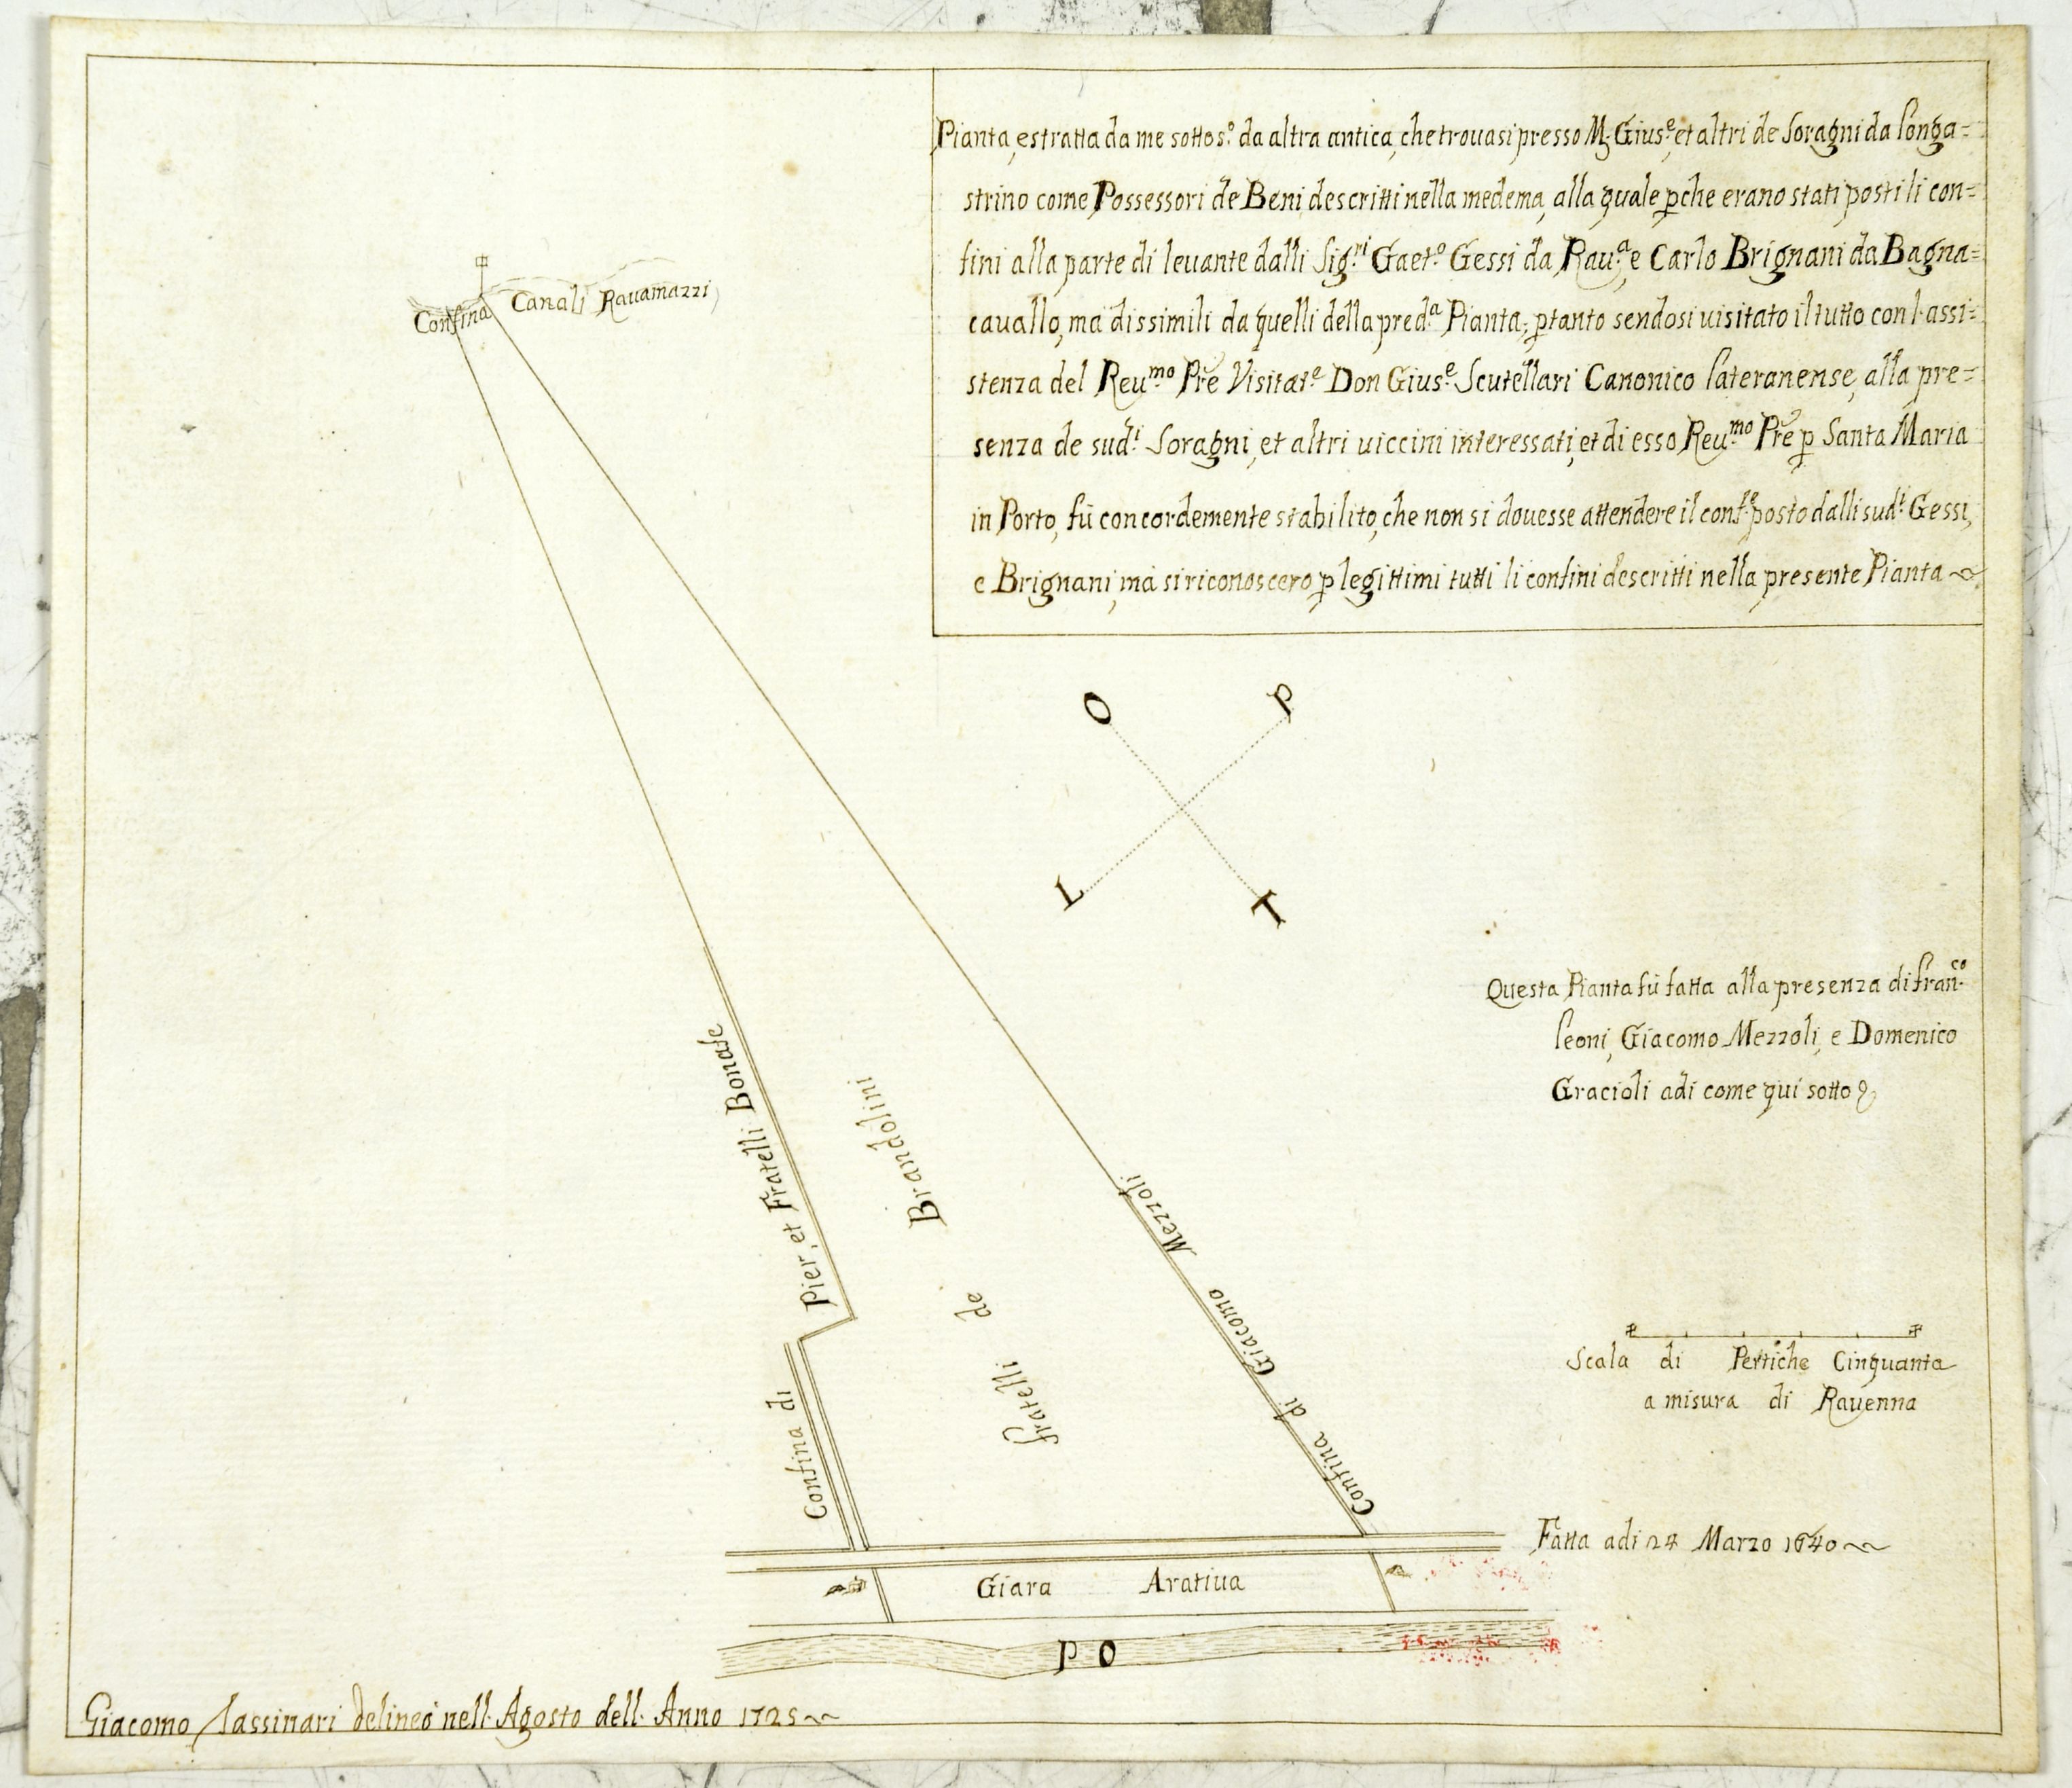 Pianta, estratta da me sottos.º da altra antica, che trouasi presso M. Gius.e, et altri de Soragni da Longa=
strino come Possessori de Beni descritti nella medema, alla quale pche erano stati posti li con=
fini alla parte di leuante dalli Sig.ri Gaet.º Gessi da Rau.a e Carlo Brignani da Bagna=
cauallo, mà dissimili da quelli della pred.a Pianta, ptanto sendosi uisitato il tutto con l'assi=
stenza del Reu.mo Pre Visitat.e Don Gius.e Scutellari Canonico Lateranense, alla pre=
senza de sud.i Soragni, et altri uiccini interessati, et di esso Reu.mo Pre p Santa Maria
in Porto, fù concordemente stabilito, che non si douesse attendere il conf.e posto dalli sud.i Gessi,
e Brignani, mà si riconoscero p legittimi tutti li confini descritti nella presente Pianta
Confina Canali Rauamazzi
O P
L T
Questa Pianta fù fatta alla presenza di Fran.co
Leoni, Giacomo Mezzoli, e Domenico
Gracioli adi come qui sotto
Confina di Pier, et Fratelli Bonase
Fratelli de Brandolini
Confina di Giacomo Mezzoli
Scala di Pertiche Cinquanta
a misura di Rauenna
Fatta adi 24 Marzo 1640
Giara Aratiua
PO
Giacomo delineò nell' Agosto dell' Anno 1725